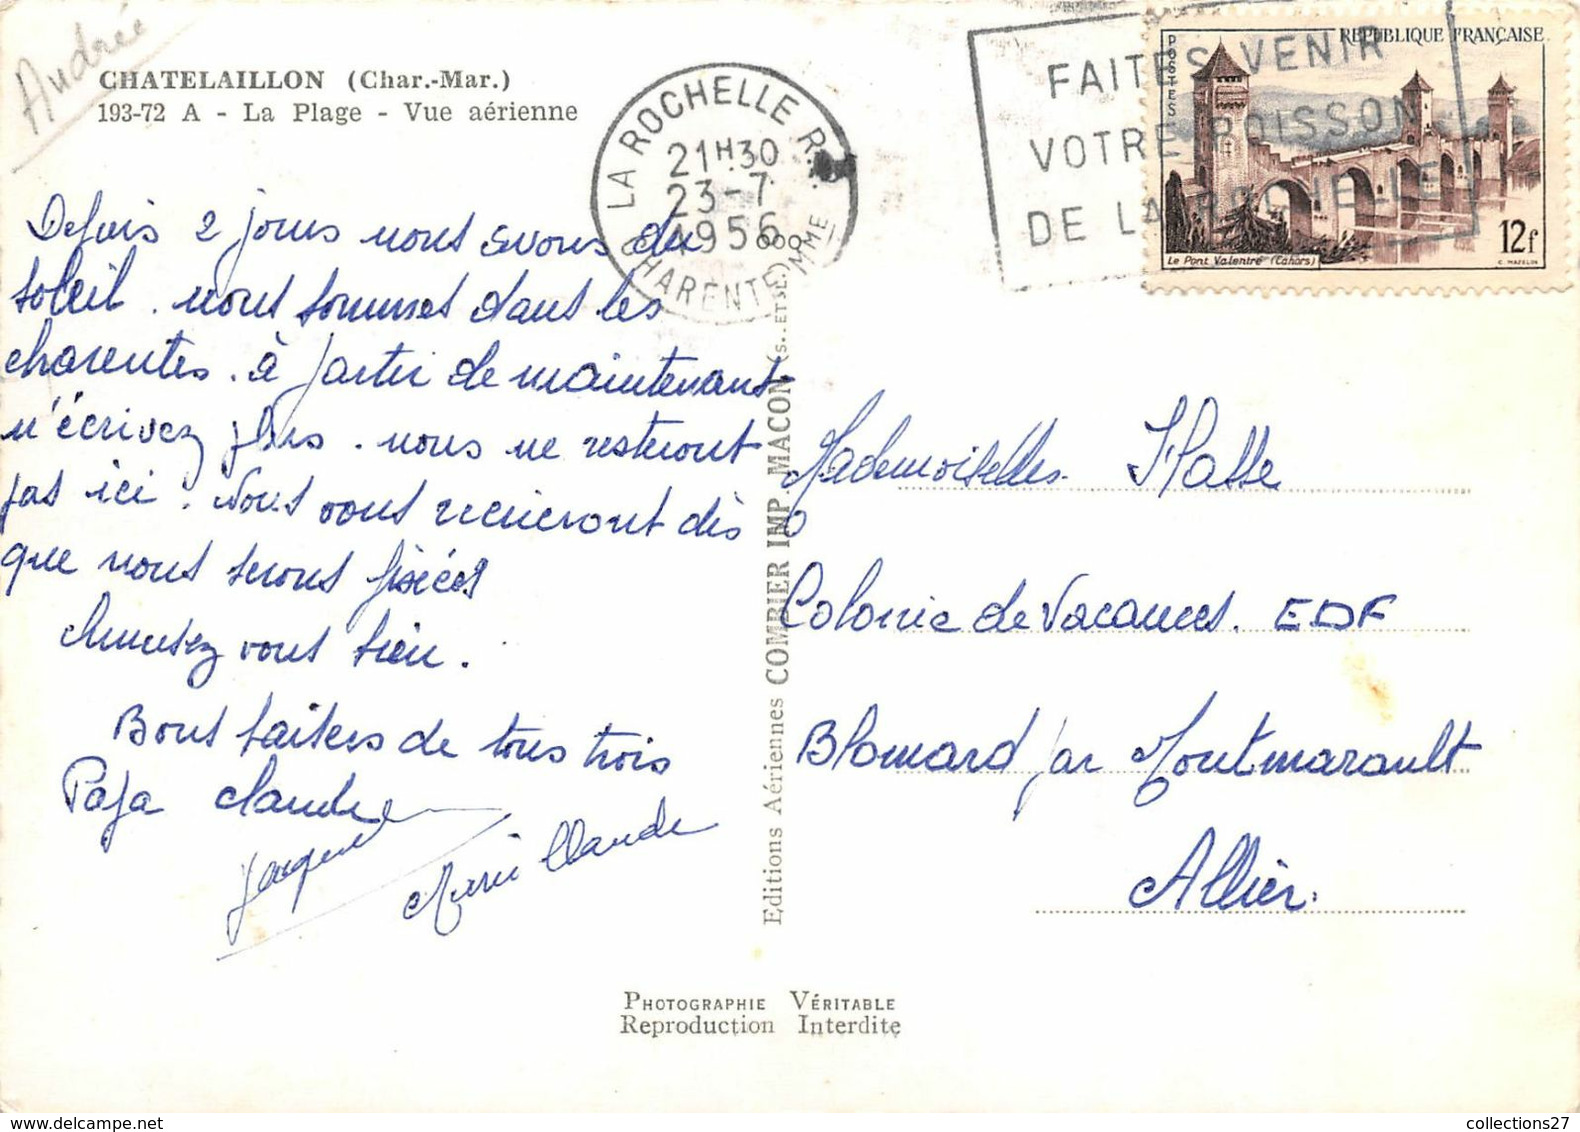 Andrée
CHATELAILLON (Char.-Mar.)
193-72 A - La Plage - Vue aérienne
LA ROCHELLE R.P.
21H30
23-7
1956
CHARENTE MME
FAITES VENIR
VOTRE POISSON
DE LA ROCHELLE
REPUBLIQUE FRANÇAISE
POSTES
Le Pont Valentré (Cahors)
12f
C. MAZELIN
Depuis 2 jours nous avons du
soleil. nous sommes dans les
charentes. à partir de maintenant
n'écrivez plus. nous ne resteront
pas ici. Nous vous récriront dès
que nous serons fixées
Amusez vous bien.
Bons baisers de tous trois
Papa Claude
Jacqueline
Marie Claude
Editions Aériennes COMBIER IMP. MACON (S.-ET-L.)
Mademoiselles
Colonie de Vacances. EDF
Blomard par Montmarault
Allier.
PHOTOGRAPHIE VÉRITABLE
Reproduction Interdite
collections27